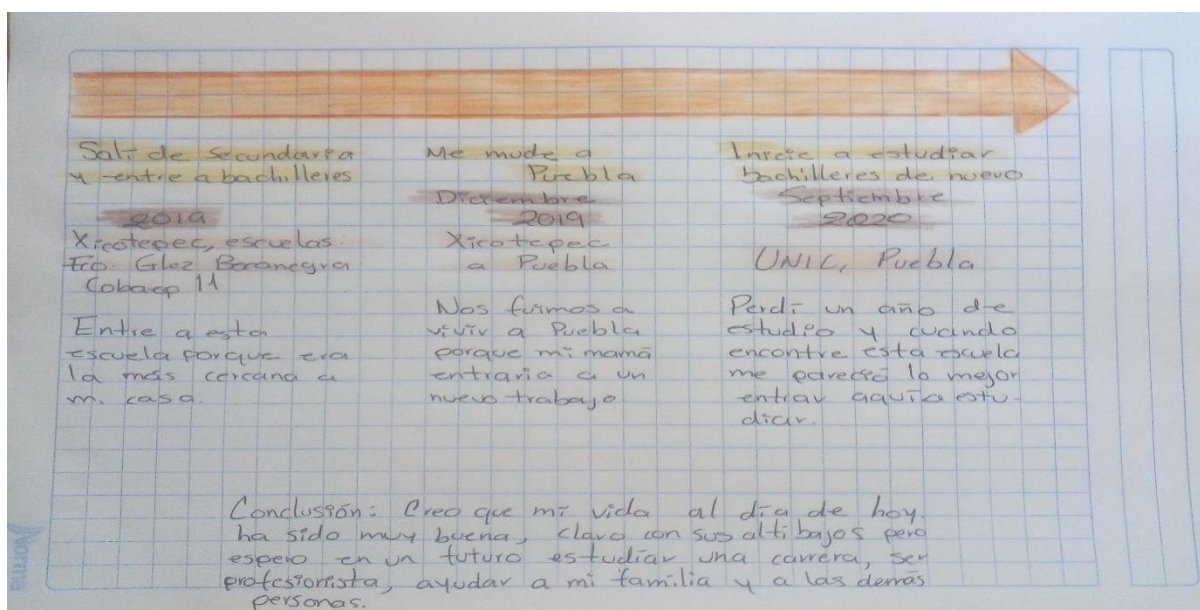 Salí de secundaria
y entre a bachilleres
2019
Xicotepec, escuelas
Fco. Glez Bocanegra
Cobaep 11
Entre a esta
escuela porque era
la más cercana a
mi casa.
Me mude a
Puebla
Diciembre
2019
Xicotepec
a Puebla
Nos fuimos a
vivir a Puebla
porque mi mamá
entraria a un
nuevo trabajo
Inicie a estudiar
bachilleres de nuevo
Septiembre
2020
UNIC, Puebla
Perdí un año de
estudio y cuando
encontre esta escuela
me pareció lo mejor
entrar aquí a estu-
diar.
Conclusión: Creo que mi vida al día de hoy
ha sido muy buena, claro con sus altibajos pero
espero en un futuro estudiar una carrera, ser
profesionista, ayudar a mi familia y a las demás
personas.
Norma